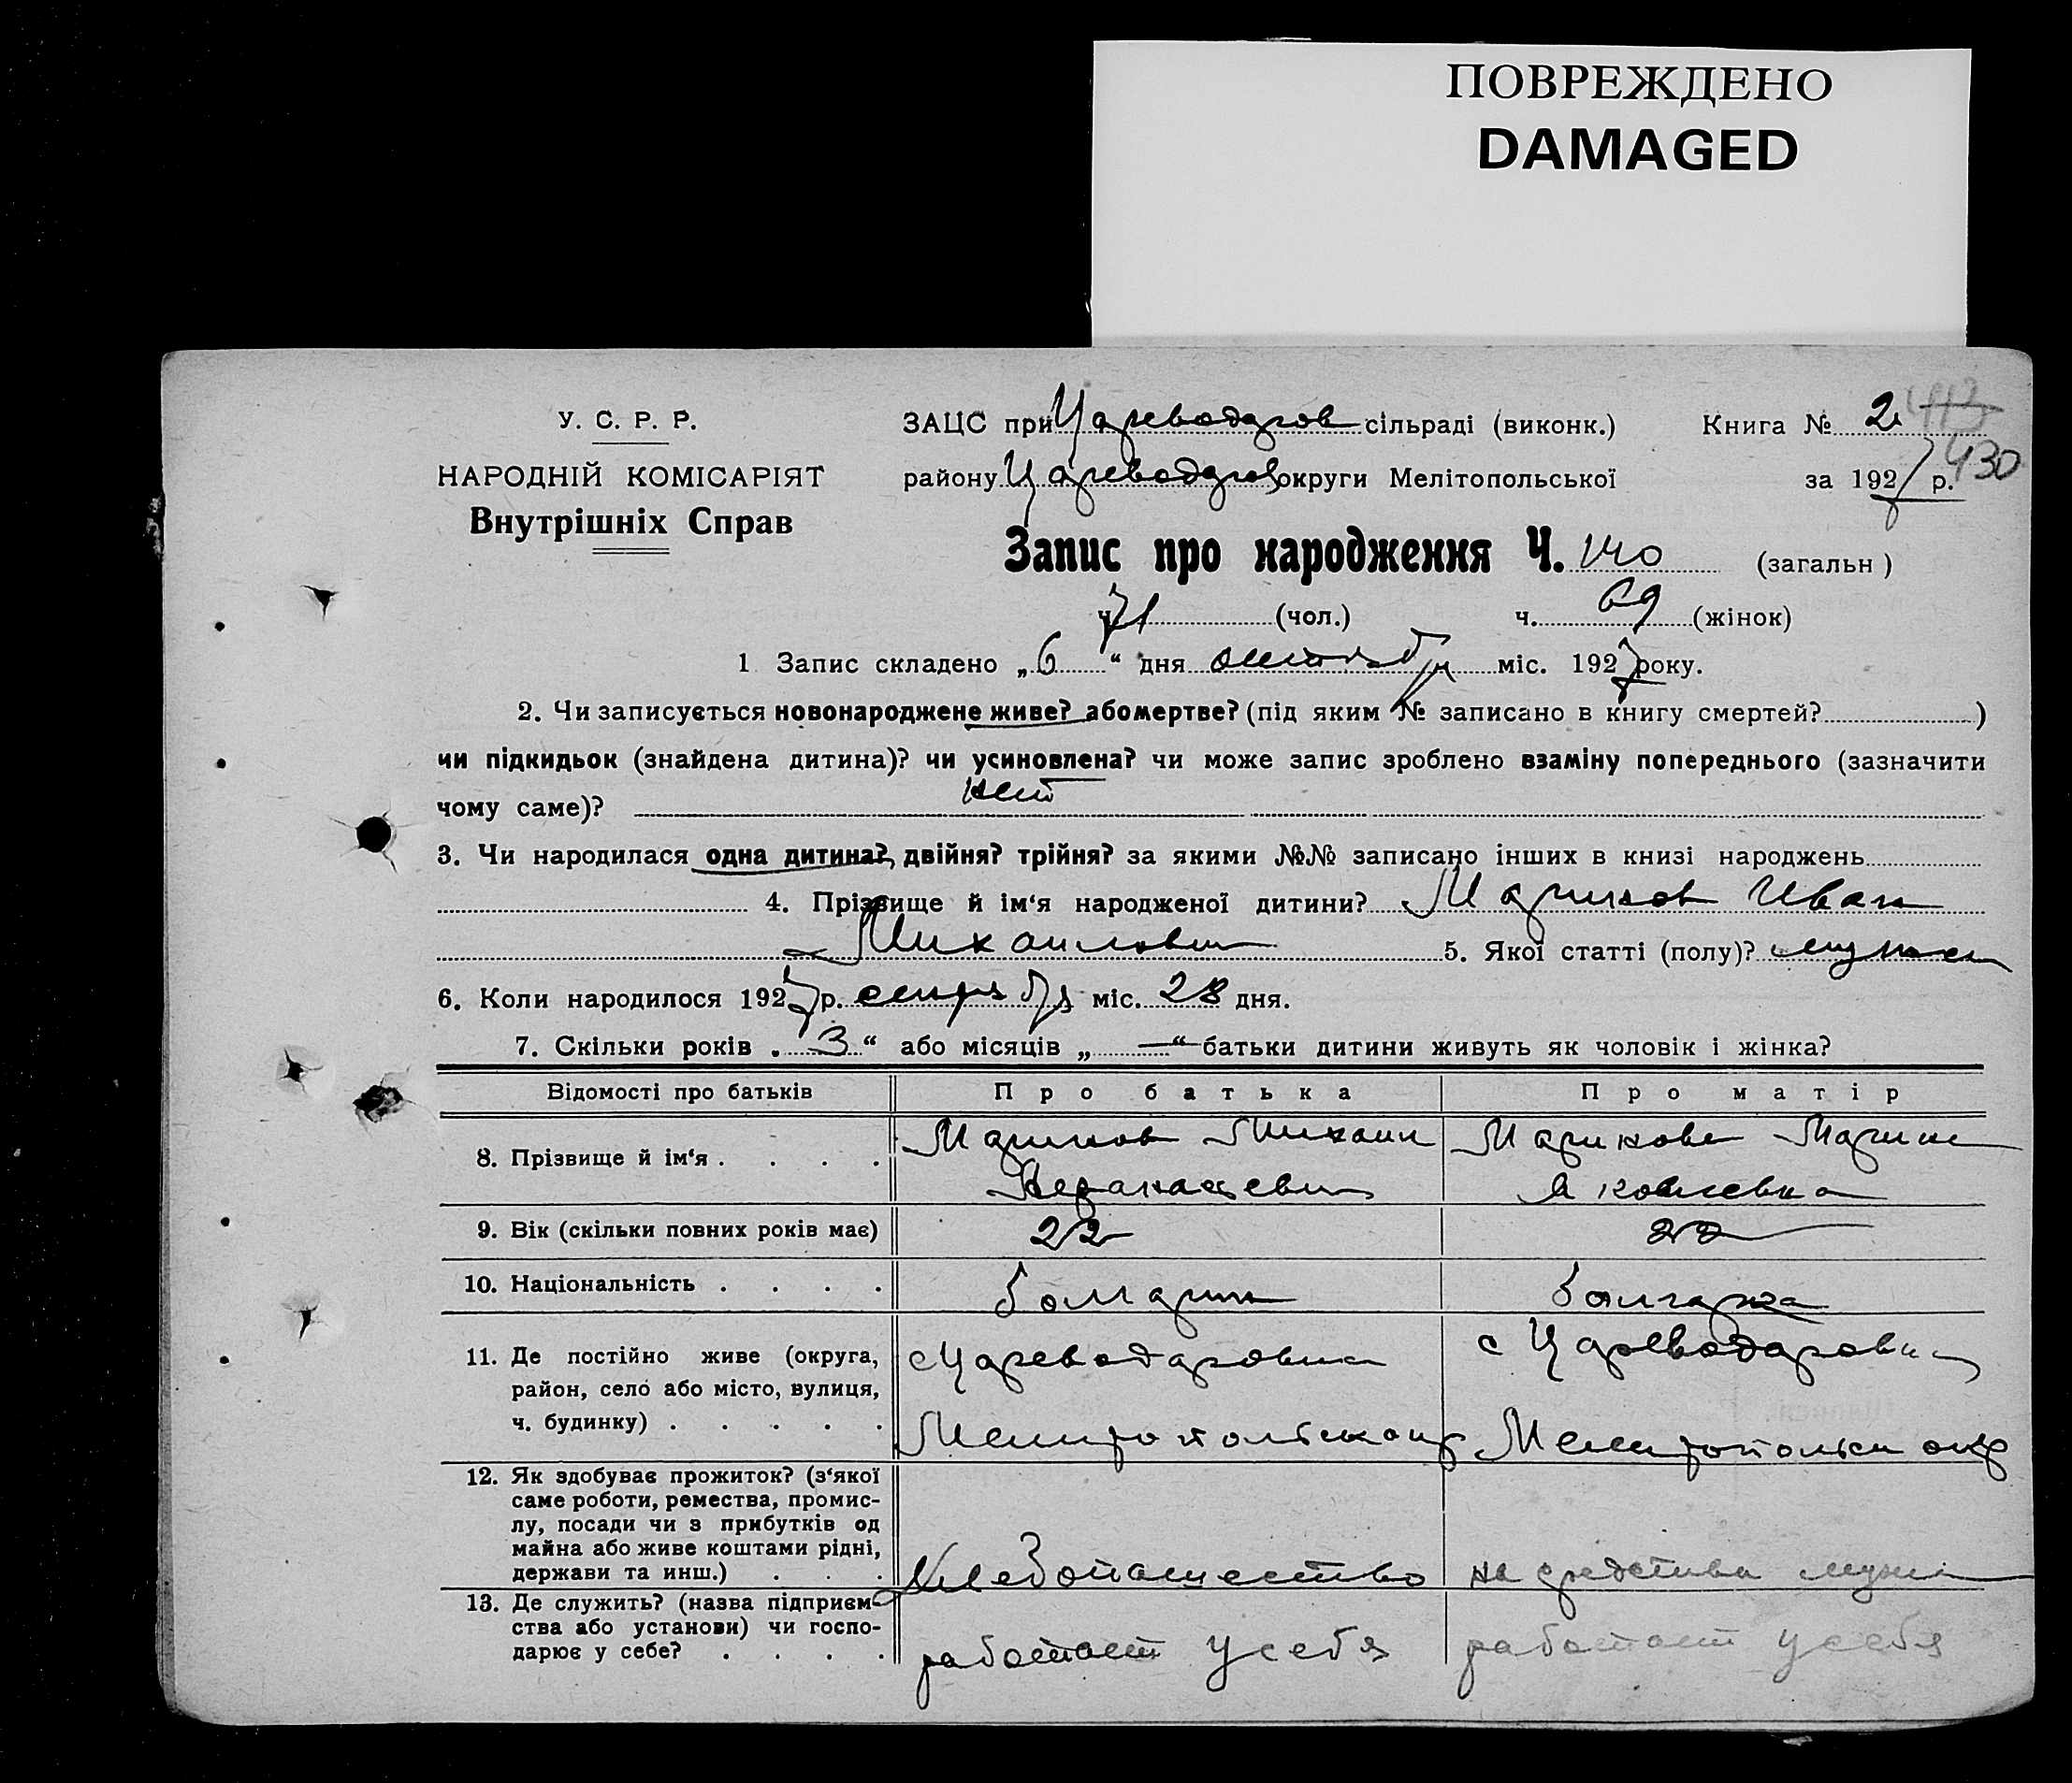 ПОВРЕЖДЕНО
DAMAGED
У. С. Р. Р.
НАРОДНІЙ КОМІСАРІЯТ
Внутрішніх Справ
ЗАЦС при Цареводаров сільраді (виконк.) Книга № 2 443
району Цареводаров округи Мелітопольської за 1927 р. 430
Запис про народження Ч. 140 (загальн)
ч. 71 (чол.) ч. 69 (жінок)
1 Запис складено „6“ дня октября міс. 1927 року.
2. Чи записується новонароджене живе? або мертве? (під яким № записано в книгу смертей? )
чи підкидьок (знайдена дитина)? чи усиновлена? чи може запис зроблено взаміну попереднього (зазначити
чому саме)? нет
3. Чи народилася одна дитина?, двійня? трійня? за якими №№ записано інших в книзі народжень
4. Прізвище й ім‘я народженої дитини? Маринов Иван
Михаилович 5. Якої статті (полу)? мужск
6. Коли народилося 1927 р. сентября міс. 28 дня.
7. Скільки років „3“ або місяців „—“ батьки дитини живуть як чоловік і жінка?
Відомості про батьків Про батька Про матір
8. Прізвище й ім‘я . . . . Маринов Михаил Маринова Марина
Яковлевна
9. Вік (скільки повних років має) 22 22
10. Національність . . . . болгарин болгарка
11. Де постійно живе (округа, район, село або місто, вулиця, ч. будинку) . . . . . с Цареводаровка с Цареводаровка
Мелитопольск окр Мелитопольск окр
12. Як здобуває прожиток? (з‘якої саме роботи, ремества, промислу, посади чи з прибутків од майна або живе коштами рідні, держави та инш.) . . . Хлебопашество на средства мужа
13. Де служить? (назва підприємства або установи) чи господарює у себе? . . . . работает у себя работает у себя